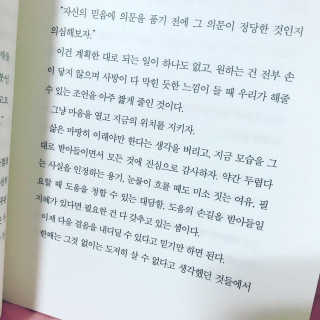 "자신의 믿음에 의문을 품기 전에 그 의문이 정당한 것인지
의심해보자."
이건 계획한 대로 되는 일이 하나도 없고, 원하는 건 전부 손
이 닿지 않으며 사방이 다 막힌 듯한 느낌이 들 때 우리가 해줄
수 있는 조언을 아주 짧게 줄인 것이다.
그냥 마음을 열고 지금의 위치를 지키자.
삶은 마땅히 이래야만 한다는 생각을 버리고, 지금 모습을 그
대로 받아들이면서 모든 것에 진심으로 감사하자. 약간 두렵다
는 사실을 인정하는 용기, 눈물이 흐를 때도 미소 짓는 여유, 필
요할 때 도움을 청할 수 있는 대담함, 도움의 손길을 받아들일
지혜가 있다면 필요한 건 다 갖추고 있는 셈이다.
이제 다음 걸음을 내디딜 수 있다고 믿기만 하면 된다.
한때는 그것 없이는 도저히 살 수 없다고 생각했던 것들에서